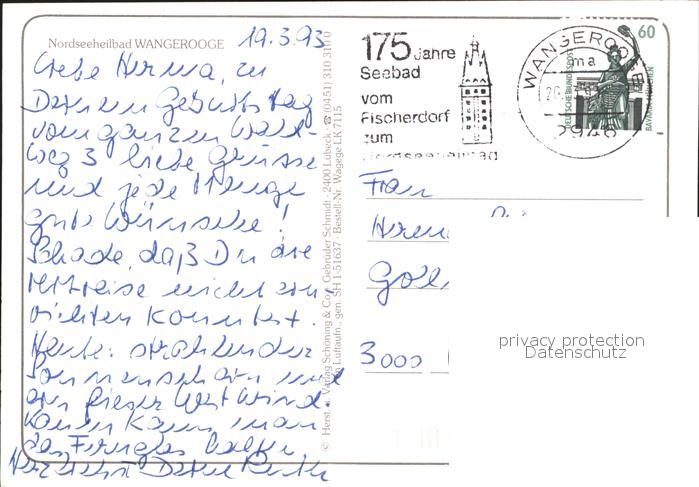 Nordseeheilbad WANGEROOGE 19.3.93
Liebe Herma, zu
Deinem Geburtstag
vom ganzen Wald-
weg 3 liebe Grüsse
und jede Menge
gute Wünsche!
Schade, daß Du die
Mitreise nicht ein-
richten konntest.
Heute: strahlender
Sonnenschein und
ein fieser Westwind.
kann man
das Fernglas halten.
Herzlichst Deine
© Herst. u. Verlag Schöning & Co. + Gebrüder Schmidt · 2400 Lübeck ☎ (0451) 310 310 0
Luftaufn., gen. SH 1-51637 · Bestell-Nr. Wagege LK 7115
175 Jahre
Seebad
vom
Fischerdorf
zum
Nordseeheilbad
WANGEROOGE
ma
2946
60
DEUTSCHE BUNDESPOST
BAVARIA MÜNCHEN
Frau
3000
privacy protection
Datenschutz